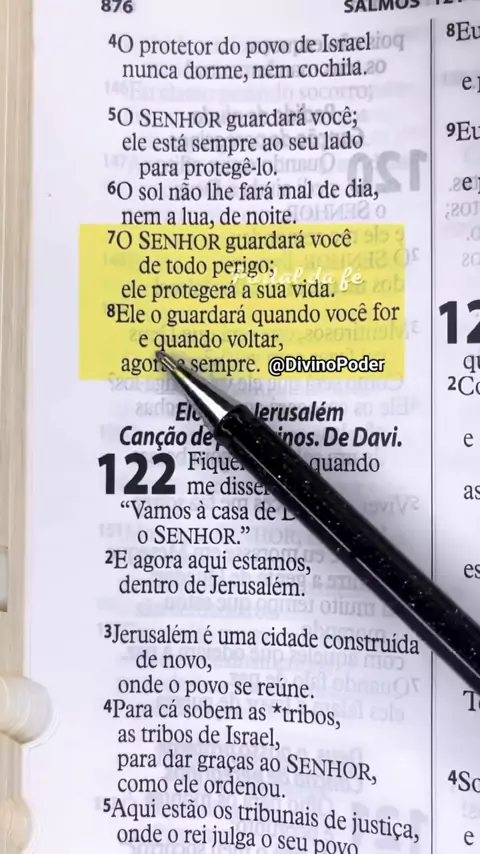 876
SALMOS
4O protetor do povo de Israel
nunca dorme, nem cochila.
5O SENHOR guardará você;
ele está sempre ao seu lado
para protegê-lo.
6O sol não lhe fará mal de dia,
nem a lua, de noite.
7O SENHOR guardará você
de todo perigo;
ele protegerá a sua vida.
8Ele o guardará quando você for
e quando voltar,
agora sempre.
@DivinoPoder
Jerusalém
Canção de De Davi.
122 quando
me
“Vamos à casa de
o SENHOR.”
2E agora aqui estamos,
dentro de Jerusalém.
3Jerusalém é uma cidade construída
de novo,
onde o povo se reúne.
4Para cá sobem as *tribos,
as tribos de Israel,
para dar graças ao SENHOR,
como ele ordenou.
5Aqui estão os tribunais de justiça,
onde o rei julga o seu povo
8Eu
e
9Eu
e
12
2
e
as
e
4
e